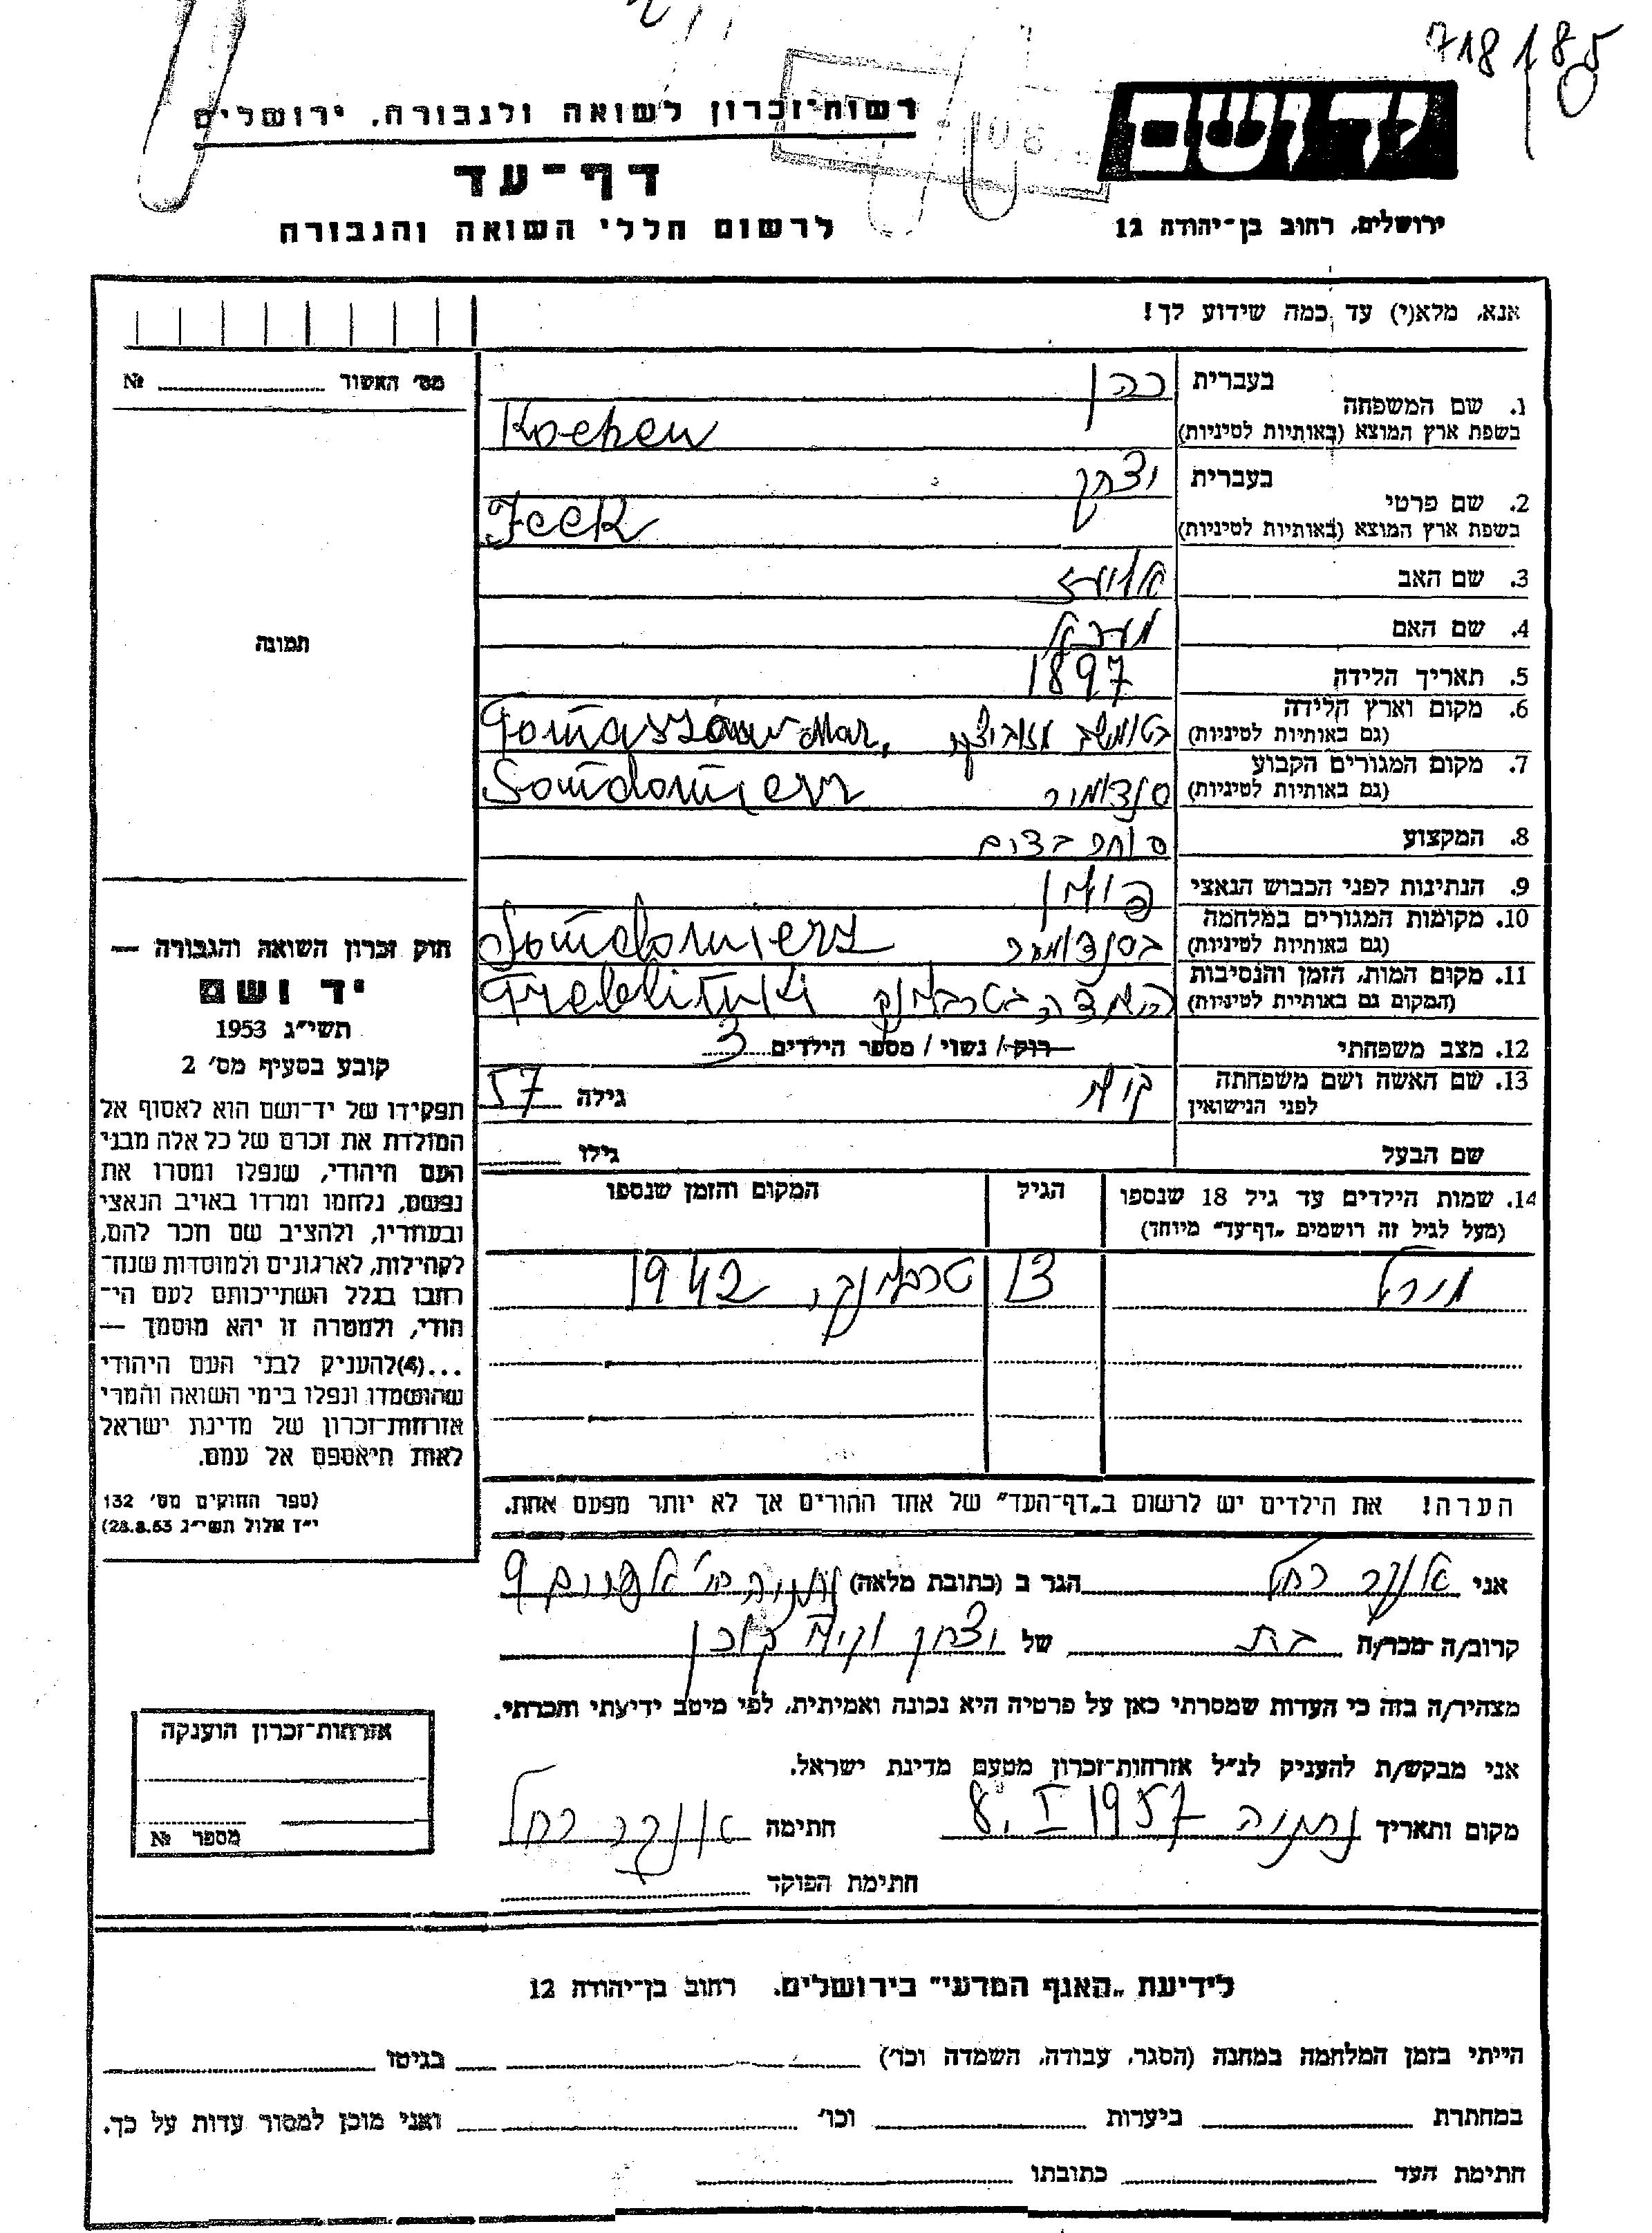 718/85
רשות־זכרון לשואה ולגבורה, ירושלים
דף־עד
לרשום חללי השואה והגבורה
יד ושם
ירושלים, רחוב בן־יהודה 12
אנא, מלא(י) עד כמה שידוע לך!
בעברית כהן
1. שם המשפחה
בשפת ארץ המוצא (באותיות לטיניות) Kochen
בעברית יצחק
2. שם פרטי
בשפת ארץ המוצא (באותיות לטיניות) Icek
3. שם האב
4. שם האם
5. תאריך הלידה 1897
6. מקום וארץ הלידה
(גם באותיות לטיניות) Tomaszów Maz,
7. מקום המגורים הקבוע
(גם באותיות לטיניות) סנדומיר Sandomierz
8. המקצוע סוחר בצים
9. הנתינות לפני הכבוש הנאצי פולין
10. מקומות המגורים במלחמה
(גם באותיות לטיניות) Sandomierz
11. מקום המות, הזמן והנסיבות
(המקום גם באותיות לטיניות) השמדה בטרבלינקה Treblinki
12. מצב משפחתי רוק / נשוי / מספר הילדים 3
13. שם האשה ושם משפחתה
לפני הנישואין גילה 57
שם הבעל גילו
14. שמות הילדים עד גיל 18 שנספו הגיל המקום והזמן שנספו
(מעל לגיל זה רושמים „דף־עד" מיוחד)
מירל 13 טרבלינקה, 1942
הערה! את הילדים יש לרשום ב„דף־העד" של אחד ההורים אך לא יותר מפעם אחת.
אני רחל הגר ב (כתובת מלאה) נתניה 9
קרוב/ה מכר/ה בת של יצחק
מצהיר/ה בזה כי העדות שמסרתי כאן על פרטיה היא נכונה ואמיתית, לפי מיטב ידיעתי והכרתי.
אני מבקש/ת להעניק לנ"ל אזרחות־זכרון מטעם מדינת ישראל.
מקום ותאריך נתניה 8. I 1957 חתימה רחל
חתימת הפוקד
מס' האשור №
תמונה
חוק זכרון השואה והגבורה —
יד ושם
תשי"ג 1953
קובע בסעיף מס' 2
תפקידו של יד־ושם הוא לאסוף אל
המולדת את זכרם של כל אלה מבני
העם היהודי, שנפלו ומסרו את
נפשם, נלחמו ומרדו באויב הנאצי
ובעוזריו, ולהציב שם וזכר להם,
לקהילות, לארגונים ולמוסדות שנח־
רחבו בגלל השתייכותם לעם הי־
הודי, ולמטרה זו יהא מוסמך —
...(4) להעניק לבני העם היהודי
שהושמדו ונפלו בימי השואה והמרי
אזרחות־זכרון של מדינת ישראל
לאות היאספם אל עמם.
(ספר החוקים מס' 132
י"ז אלול תשי"ג 28.8.53)
אזרחות־זכרון הוענקה
מספר №
לידיעת „האגף המדעי" בירושלים. רחוב בן־יהודה 12
הייתי בזמן המלחמה במחנה (הסגר, עבודה, השמדה וכו') בגיטו
במחתרת ביערות וכו' ואני מוכן למסור עדות על כך.
חתימת העד כתובתו